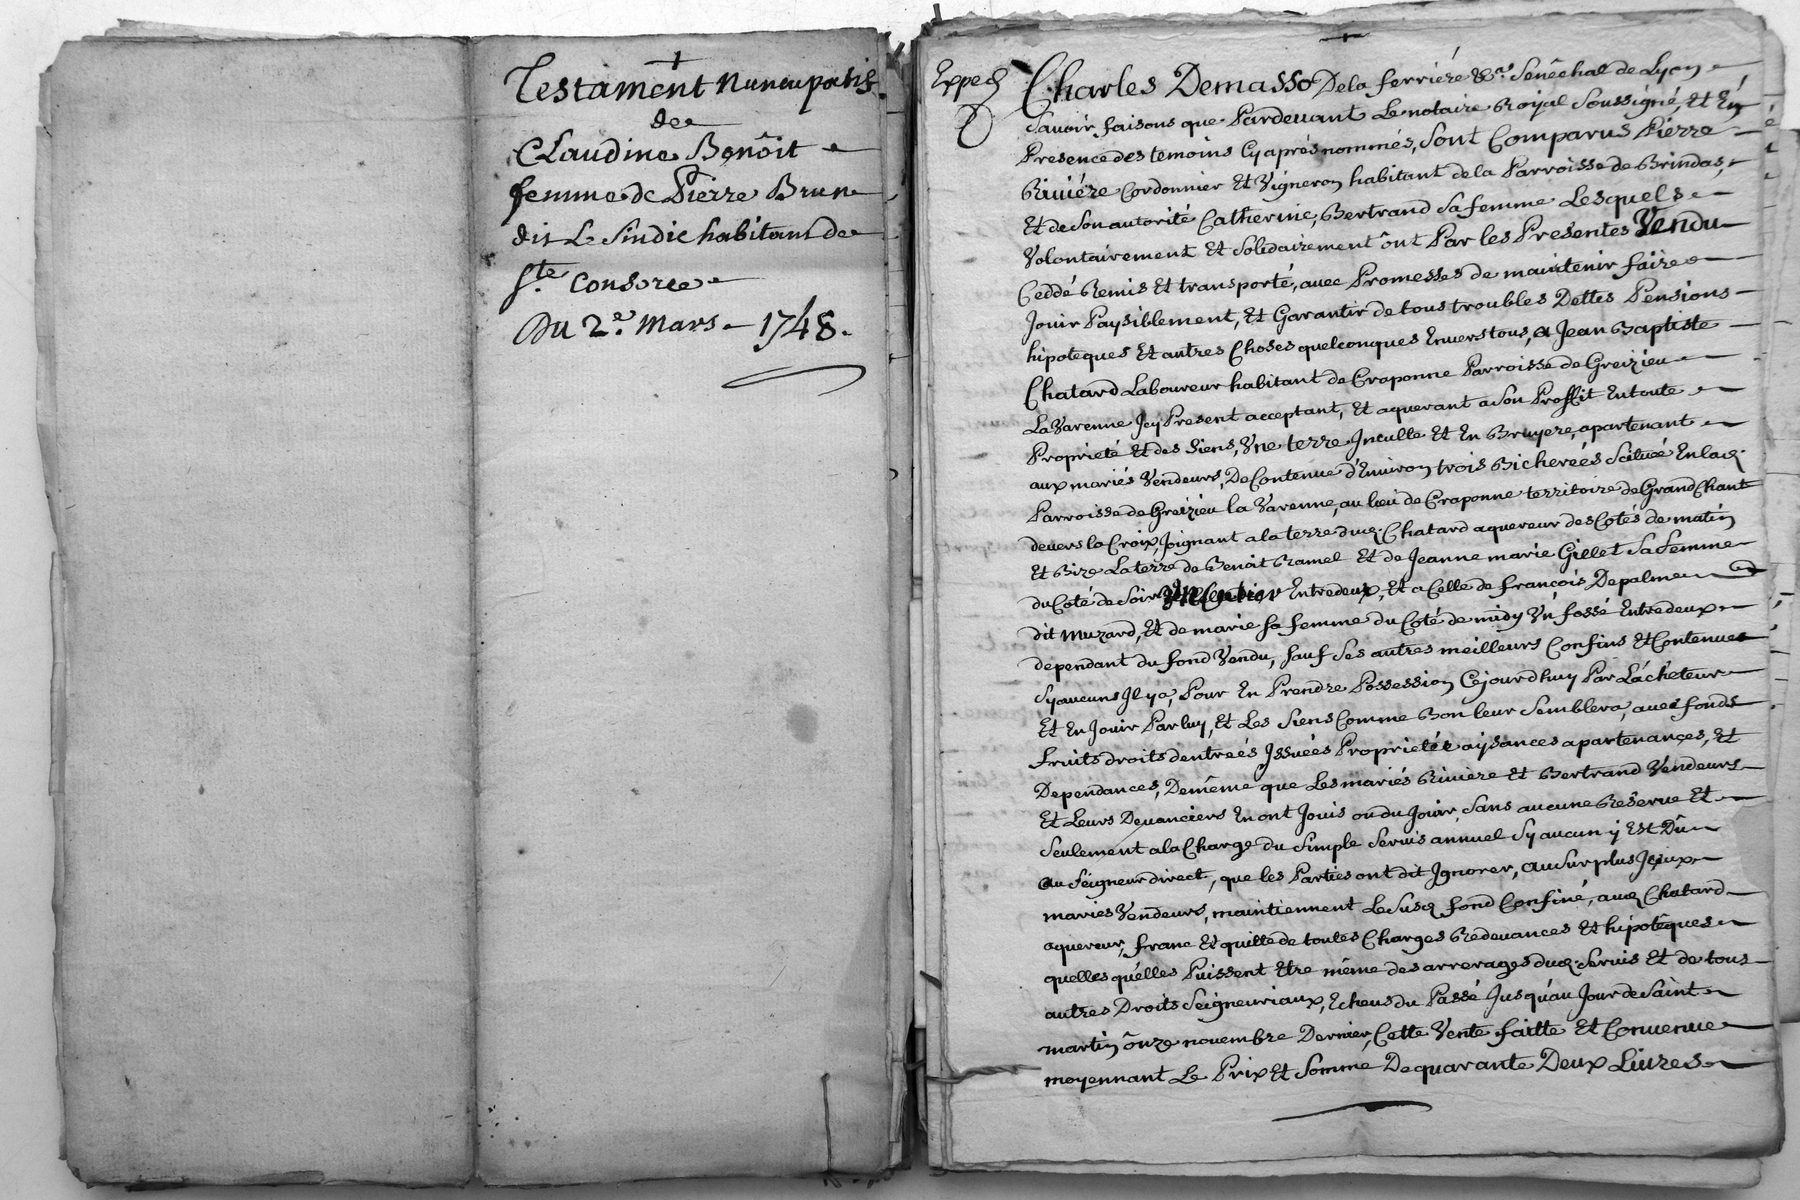 Testament Nuncupatif
de
Claudine Benôit
femme de Pierre Brun
dit Le Sindic habitant de
Ste. Consorce
Du 2e. Mars 1748.
Exped
Charles Demasso De la ferriere &c. Senéchal de Lyon
Savoir faisons que Pardevant Le notaire Royal Soussigné, Et En
Presence des temoins Cy aprés nommés, Sont Comparus Pierre
Riviére Cordonnier Et Vigneron habitant de la Parroisse de Brindas,
Et de Son autorité Catherine Bertrand Sa femme Lesquels
Volontairement Et Solidairement ônt Par les Présentes Vendu
Ceddé Remis Et transporté, avec Promesses de maintenir faire
Jouir Paysiblement, Et Garantir de tous troubles Dettes Pensions
hipoteques Et autres Choses quelconques Envers tous, a Jean Baptiste
Chatard Laboureur habitant de Craponne Parroisse de Greizieu
La Varenne Jcy Present acceptant, Et aquerant a Son Proffit En toute
Proprieté Et des Siens, Vne terre Jnculte Et En Bruyere, apartenant
aux mariés Vendeurs, De Contenue d'Environ trois Bicherées Scituée En lad.
Parroisse de Greizieu la Varenne, au lieu de Craponne territoire de Grand Chant
devers la Croix, Joignant a la terre dud. Chatard aquereur des Cotés de matin
Et Bize La terre de Benoit Ramel Et de Jeanne marie Gillet Sa femme
du Coté de Soir Vn Sentier Entredeux, Et a Celle de françois Depalme
dit Muzard, Et de marie Sa femme du Coté de midy Vn fossé Entredeux
dependant du fond Vendu, Sauf Ses autres meilleurs Confins Et Contenue
Sy aucuns Jl y a, Pour En Prendre Possession Cejourdhuy Par L'acheteur
Et En Jouir Par luy, Et Les Siens Comme Bon leur Semblera, avec fonds
fruits droits dentreés Jssuées Proprietés aysances apartenances, Et
Dependances, De même que Les mariés Riviere Et Bertrand Vendeurs
Et Leurs Devanciers En ont Jouis ou du Jouir, Sans aucune Réserve Et
Seulement a la Charge du Simple Servis annuel Sy aucun y Est Dû
au Seigneur direct, que les Parties ont dit Jgnorer, au Surplus Jceux
maries Vendeurs, maintiennent Le Susd. fond Confiné, aud. Chatard
aquereur, franc Et quitte de toutes Charges Redevances Et hipotêques
quelles qu'elles Puissent Etre même des arrerages dud. Servis Et de tous
autres Droits Seigneuriaux, Echeus du Passé Jusqu'au Jour de Saint
martin ônze novembre Dernier, Cette Vente faitte Et Convenue
moyennant Le Prix Et Somme De quarante Deux Livres